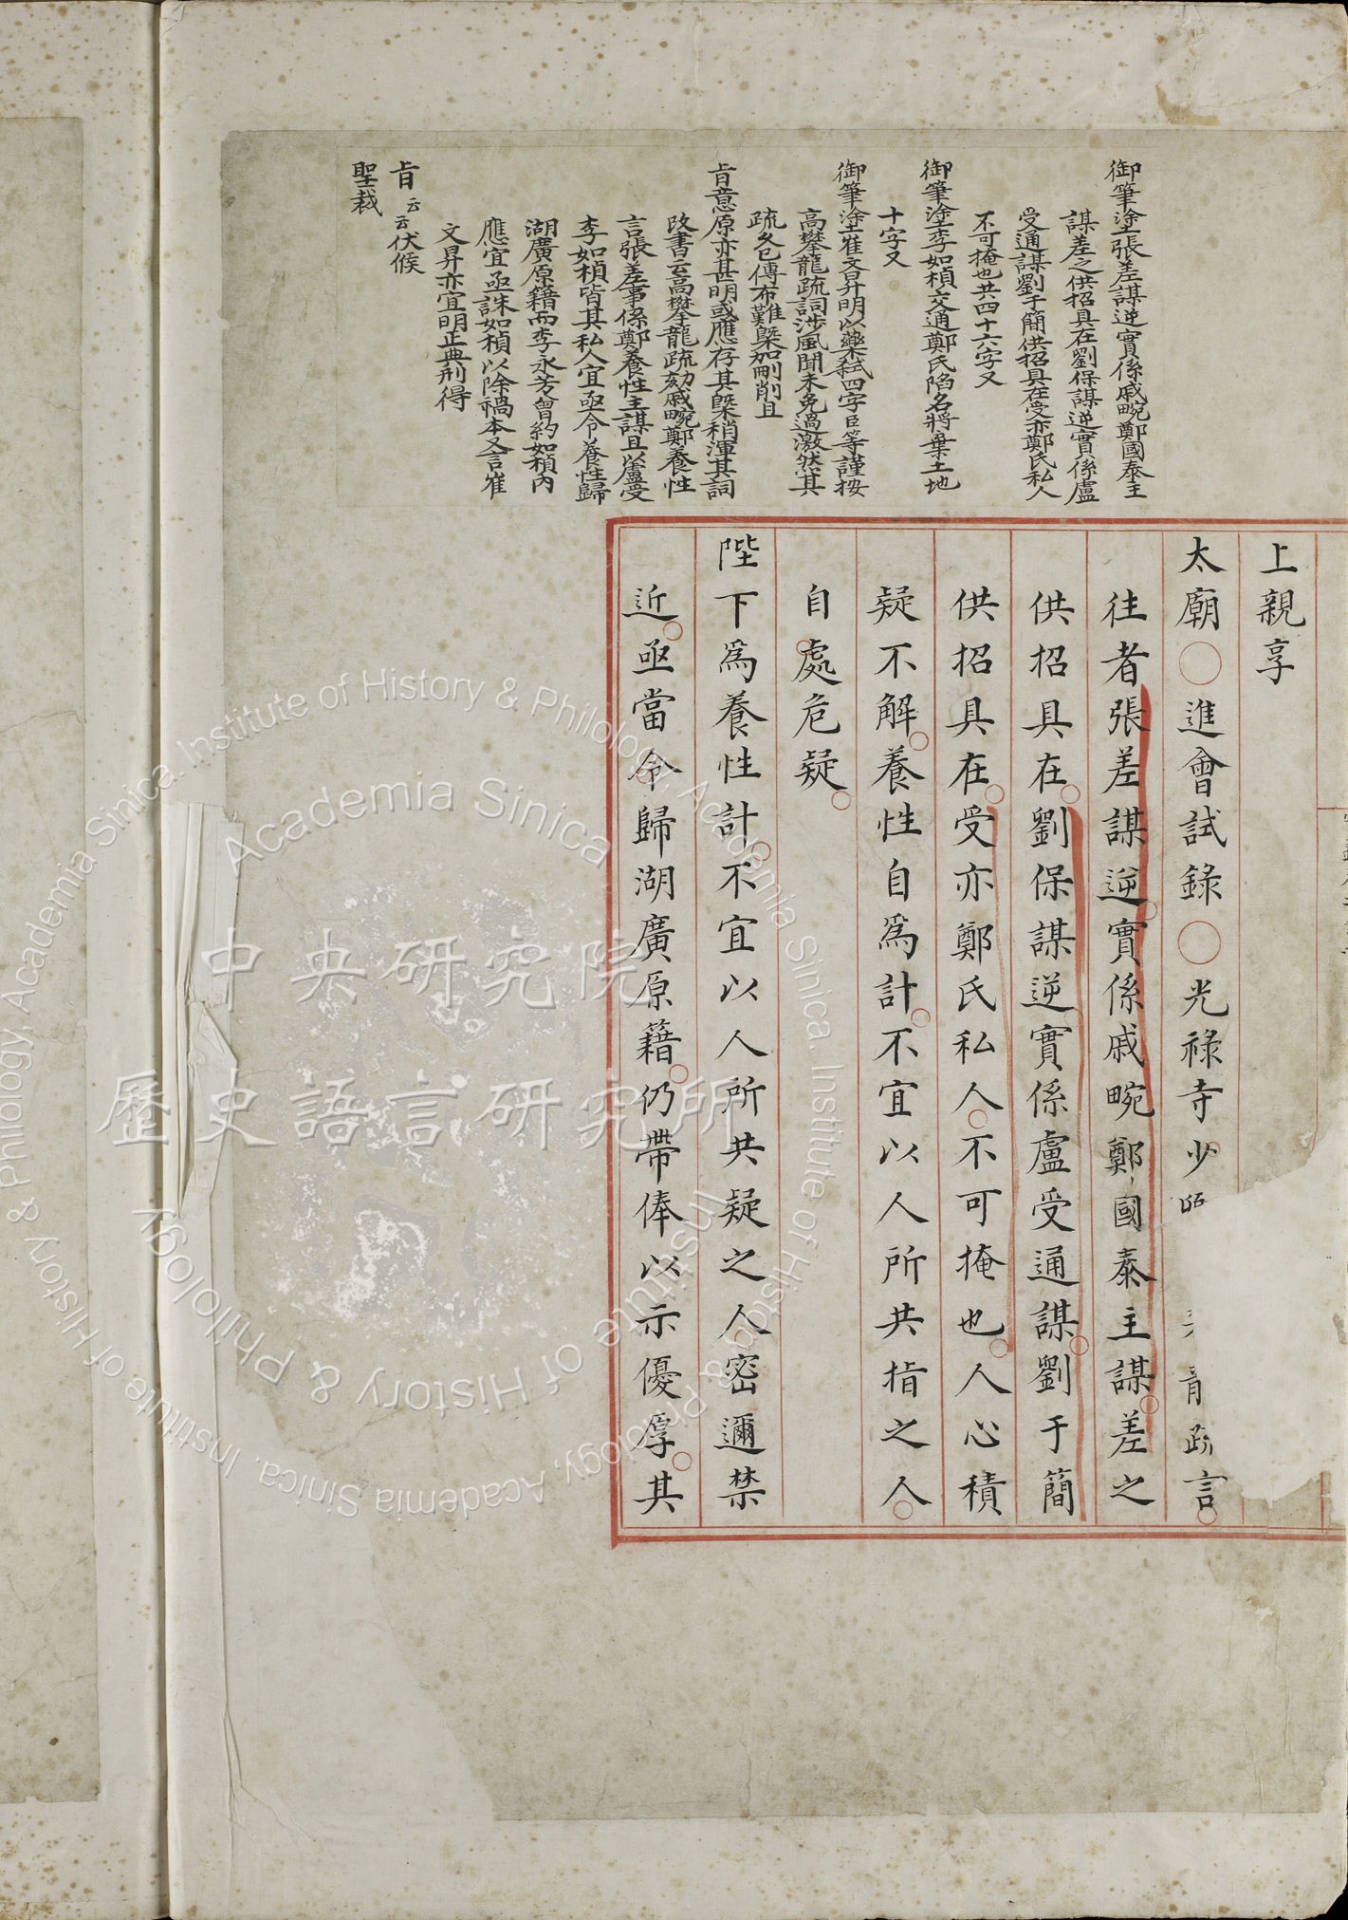 御筆塗張差謀逆實係戚畹鄭國泰主
謀差之供招具在劉保謀逆實係盧
受通謀劉于簡供招具在受亦鄭氏私人
不可掩也共四十六字又
御筆塗李如楨交通鄭氏陷名將棄土地
十字又
御筆塗崔文昇明以藥弒四字臣等謹按
高攀龍疏詞涉風聞未免過激然其
疏久已傳布難槩加刪削且
旨意原亦甚明或應存其槩稍渾其詞
改書云高攀龍疏劾戚畹鄭養性
言張差事係鄭養性主謀且以盧受
李如楨皆其私人宜亟令養性歸
湖廣原籍而李永芳曾約如楨內
應宜亟誅如楨以除禍本又言崔
文昇亦宜明正典刑得
旨云云伏候
聖裁
上親享
太廟○進會試錄○光祿寺少
疏言
往者張差謀逆實係戚畹鄭國泰主謀差之
供招具在劉保謀逆實係盧受通謀劉于簡
供招具在受亦鄭氏私人不可掩也人心積
疑不解養性自為計不宜以人所共指之人
自處危疑
陛下為養性計不宜以人所共疑之人密邇禁
近亟當令歸湖廣原籍仍帶俸以示優厚其
中央研究院
歷史語言研究所
Academia Sinica
Institute of History & Philology
Institute of History & Philology, Academia Sinica.